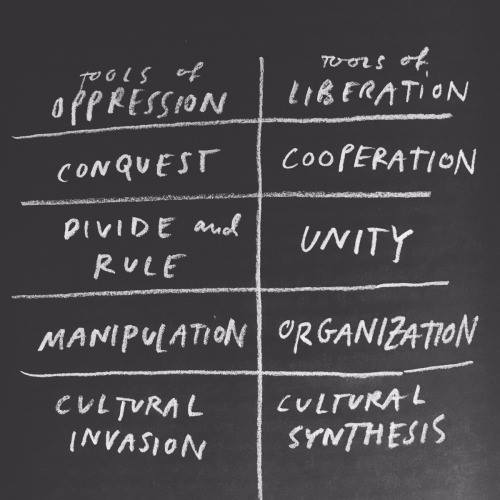 TOOLS of
OPPRESSION
TOOLS of
LIBERATION
CONQUEST
COOPERATION
DIVIDE and
RULE
UNITY
MANIPULATION
ORGANIZATION
CULTURAL
INVASION
CULTURAL
SYNTHESIS